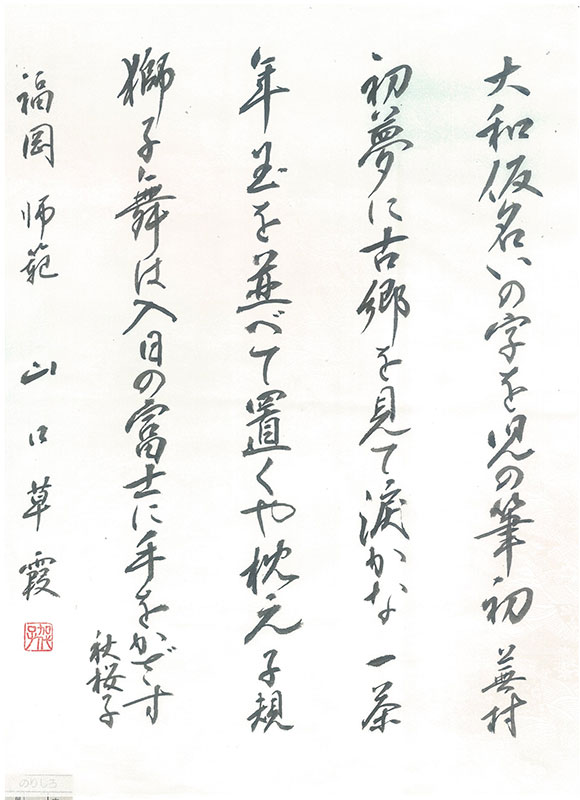 大和仮名いの字を児の筆初 蕪村
初夢に古郷を見て涙かな 一茶
年玉を並べて置くや枕元 子規
獅子舞は入日の富士に手をかざす
秋桜子
福岡 師範 山口草霞